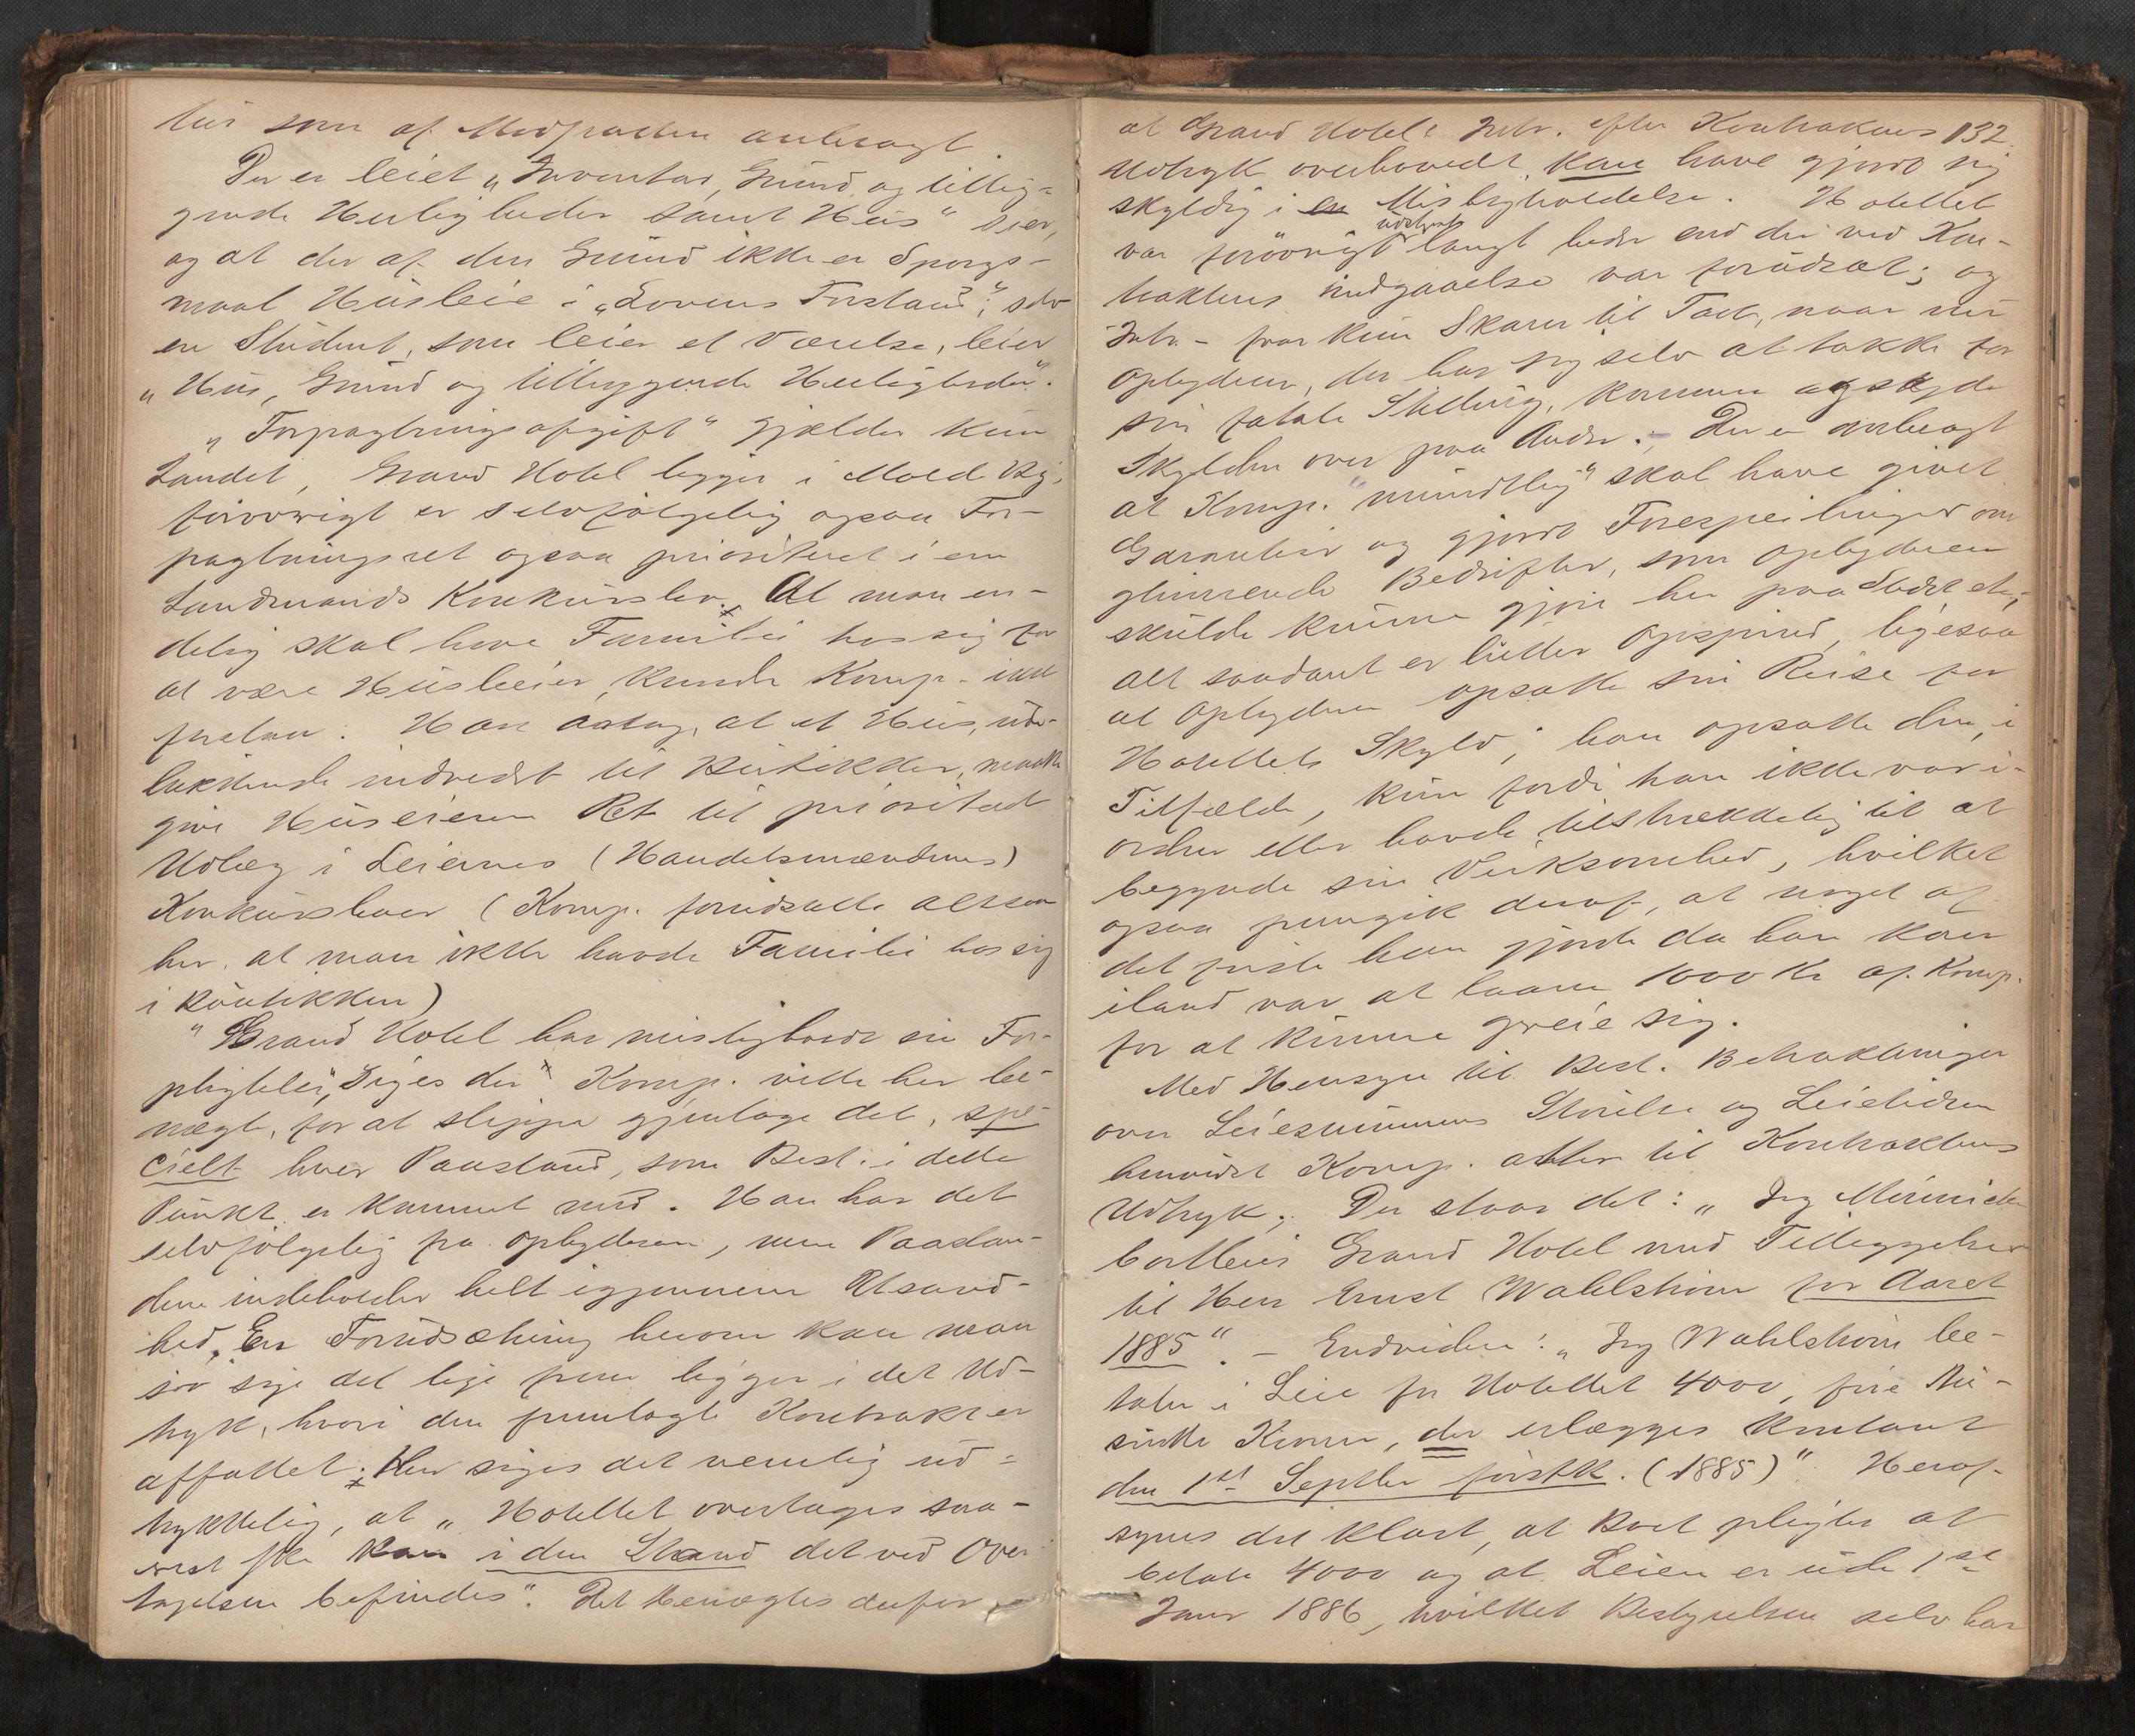 tuis som af Modparten anbragt.
Der er leiet „Inventar, Grund og tillig-
gende Herligheder samt Hus" sier,
og at der af den Grund ikke er Spørgs-
maal Husleie i „Lovens Forstand"; selv
en Student, som leier et Værelse, leier
„Hus, Grund og tilliggende Herligheder".
„Forpagtningsafgift" gjælder kun
Landet, Grand Hotel ligger i Molde By;
forøvrigt er selvfølgelig ogsaa For-
pagtningsret ogsaa prioriteret i en
Landmands Konkursbo. At man en-
delig skal have Familie hos sig for
at være Husleier, kunde Komp. ikke
forstaa. Han antog, at et Hus, ude-
lukkende indredet til Butikker, maatte
give Huseieren Ret til prioriteret
Udlæg i Leiernes (Handelsmændenes)
Konkursboer (Komp. forudsatte altsaa
her, at man ikke havde Familie hos sig
i Boutikken)
"Grand Hotel har misligholdt sin For-
pligtelse", siges der. Komp. vilde her be-
nægte, for at slippe gjentage det, spe-
cielt hver Paastand, som Best. i dette
Punkt er kommet med. Han har det
selvfølgelig fra Opbyderen, men Paastan-
dene indeholder helt igjennem Usand-
hed. En Forudsætning herom kan man
jo sige det lige frem ligger i det Ud-
tryk, hvori den fremlagte Kontrakt er
affattet. Her siges det nemlig ud-
trykkelig, at „Hotellet overtages saa-
snart ske kan i den Stand det ved Over-
tagelsen befindes". Det benægtes derfor
at Grand Hotels Intr. efter Kontraktens 132
Udtryk overhovedet kan have gjort sig
skyldig i en Misligholdelse. Hotellet
udstyret
var forøvrigt langt bedre end der ved Kon-
traktens Indgaaelse var forudsat; og
Intr. faar kun Skarn til Tak, naar nu
Opbyderen, der har sig selv at takke for
sin fatale Stilling, kommer og skyder
Skylden over paa Andre. Der er anbragt
at Komp. "mundtlig" skal have givet
Garantier og gjort Forespeilinger om
glimrende Bedrifter, som Opbyderen
skulde kunne gjøre her paa Stedet etc.,
alt saadant er lutter Opspind, ligesaa
at Opbyderen opsatte sin Reise for
Hotellets Skyld; han opsatte den, i
Tilfælde, kun fordi han ikke var i-
orden eller havde tilstrækkelig til at
begynde sin Virksomhed, hvilket
ogsaa fremgik deraf, at noget af
det første han gjorde da han kom
iland var at laane 1000 Kr af Komp.
for at kunne greie sig.
Med Hensyn til Best. Betraktninger
over Leiesummens Størrelse og Leietiden
henviste Komp. atter til Kontraktens
Udtryk. Der staar det: „Jeg
bortleier Grand Hotel med Tilliggelser
til Herr Ernst Wahlstrøm for Aaret
1885". – Endvidere: „Jeg Wahlstrøm be-
taler i Leie for Hotellet 4000, fire Tu-
sinde Kroner, der erlægges kontant
den 1ste Septbr førstk. (1885)". Heraf
synes det klart, at Boet pligter at
betale 4000 og at Leien er ude 1ste
Janr 1886, hvilket Bestyrelsen selv har